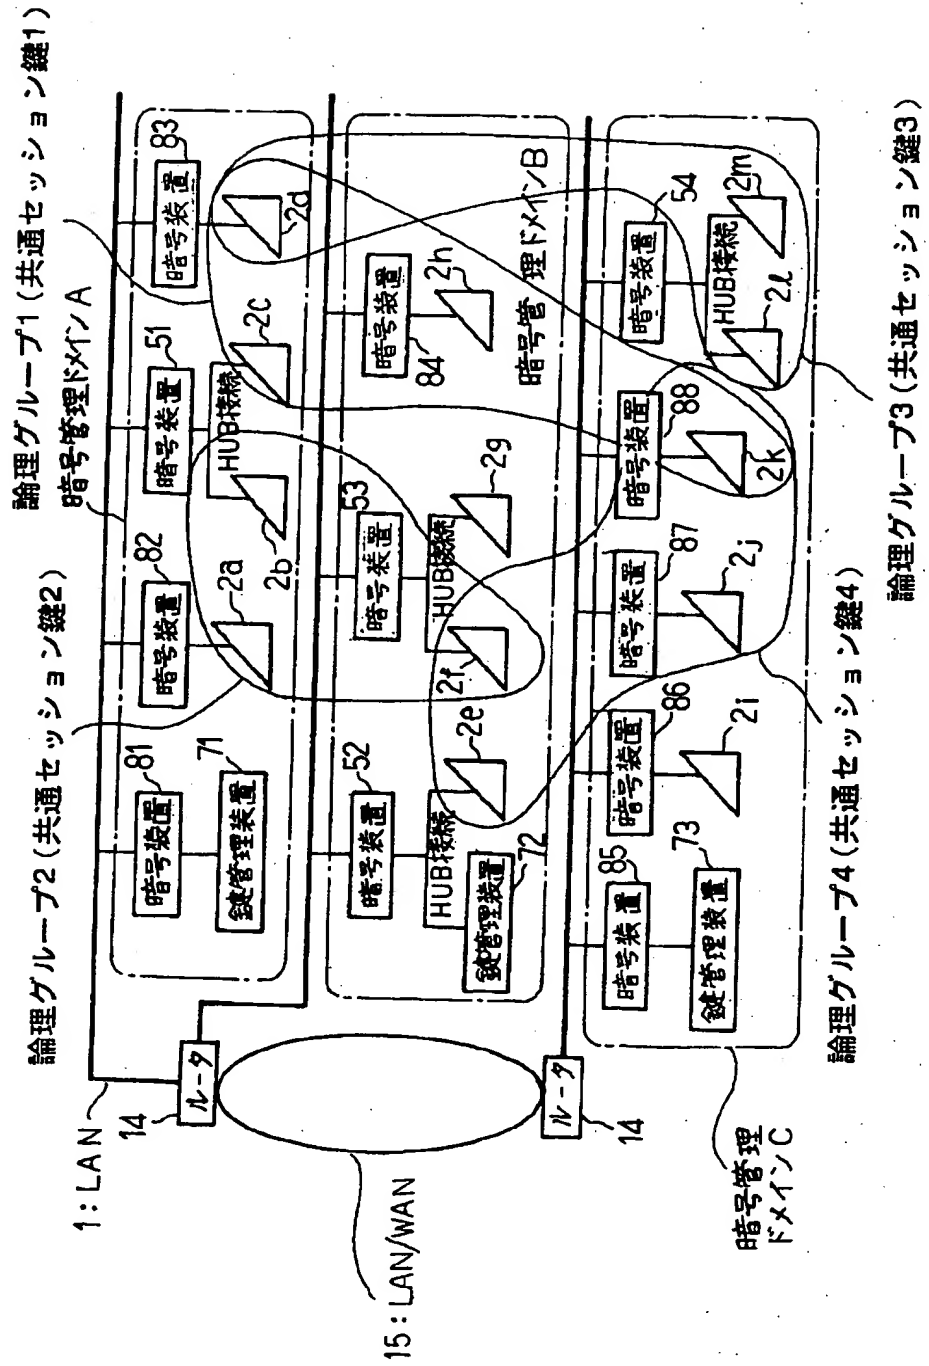 論理グループ1(共通セッション鍵1)
暗号管理ドメインA
論理グループ2(共通セッション鍵2)
1:LAN
14
ルータ
暗号装置
81
鍵管理装置
71
暗号装置
82
2a
暗号装置
51
HUB接続
2b
2c
暗号装置
83
2d
暗号装置
52
HUB接続
鍵管理装置
72
2e
暗号装置
53
HUB接続
2f
2g
暗号装置
84
2h
暗号管理ドメインB
15:LAN/WAN
ルータ
14
暗号装置
85
鍵管理装置
73
暗号装置
86
2i
暗号装置
87
2j
暗号装置
88
2k
暗号装置
54
HUB接続
2l
2m
暗号管理
ドメインC
論理グループ4(共通セッション鍵4)
論理グループ3(共通セッション鍵3)